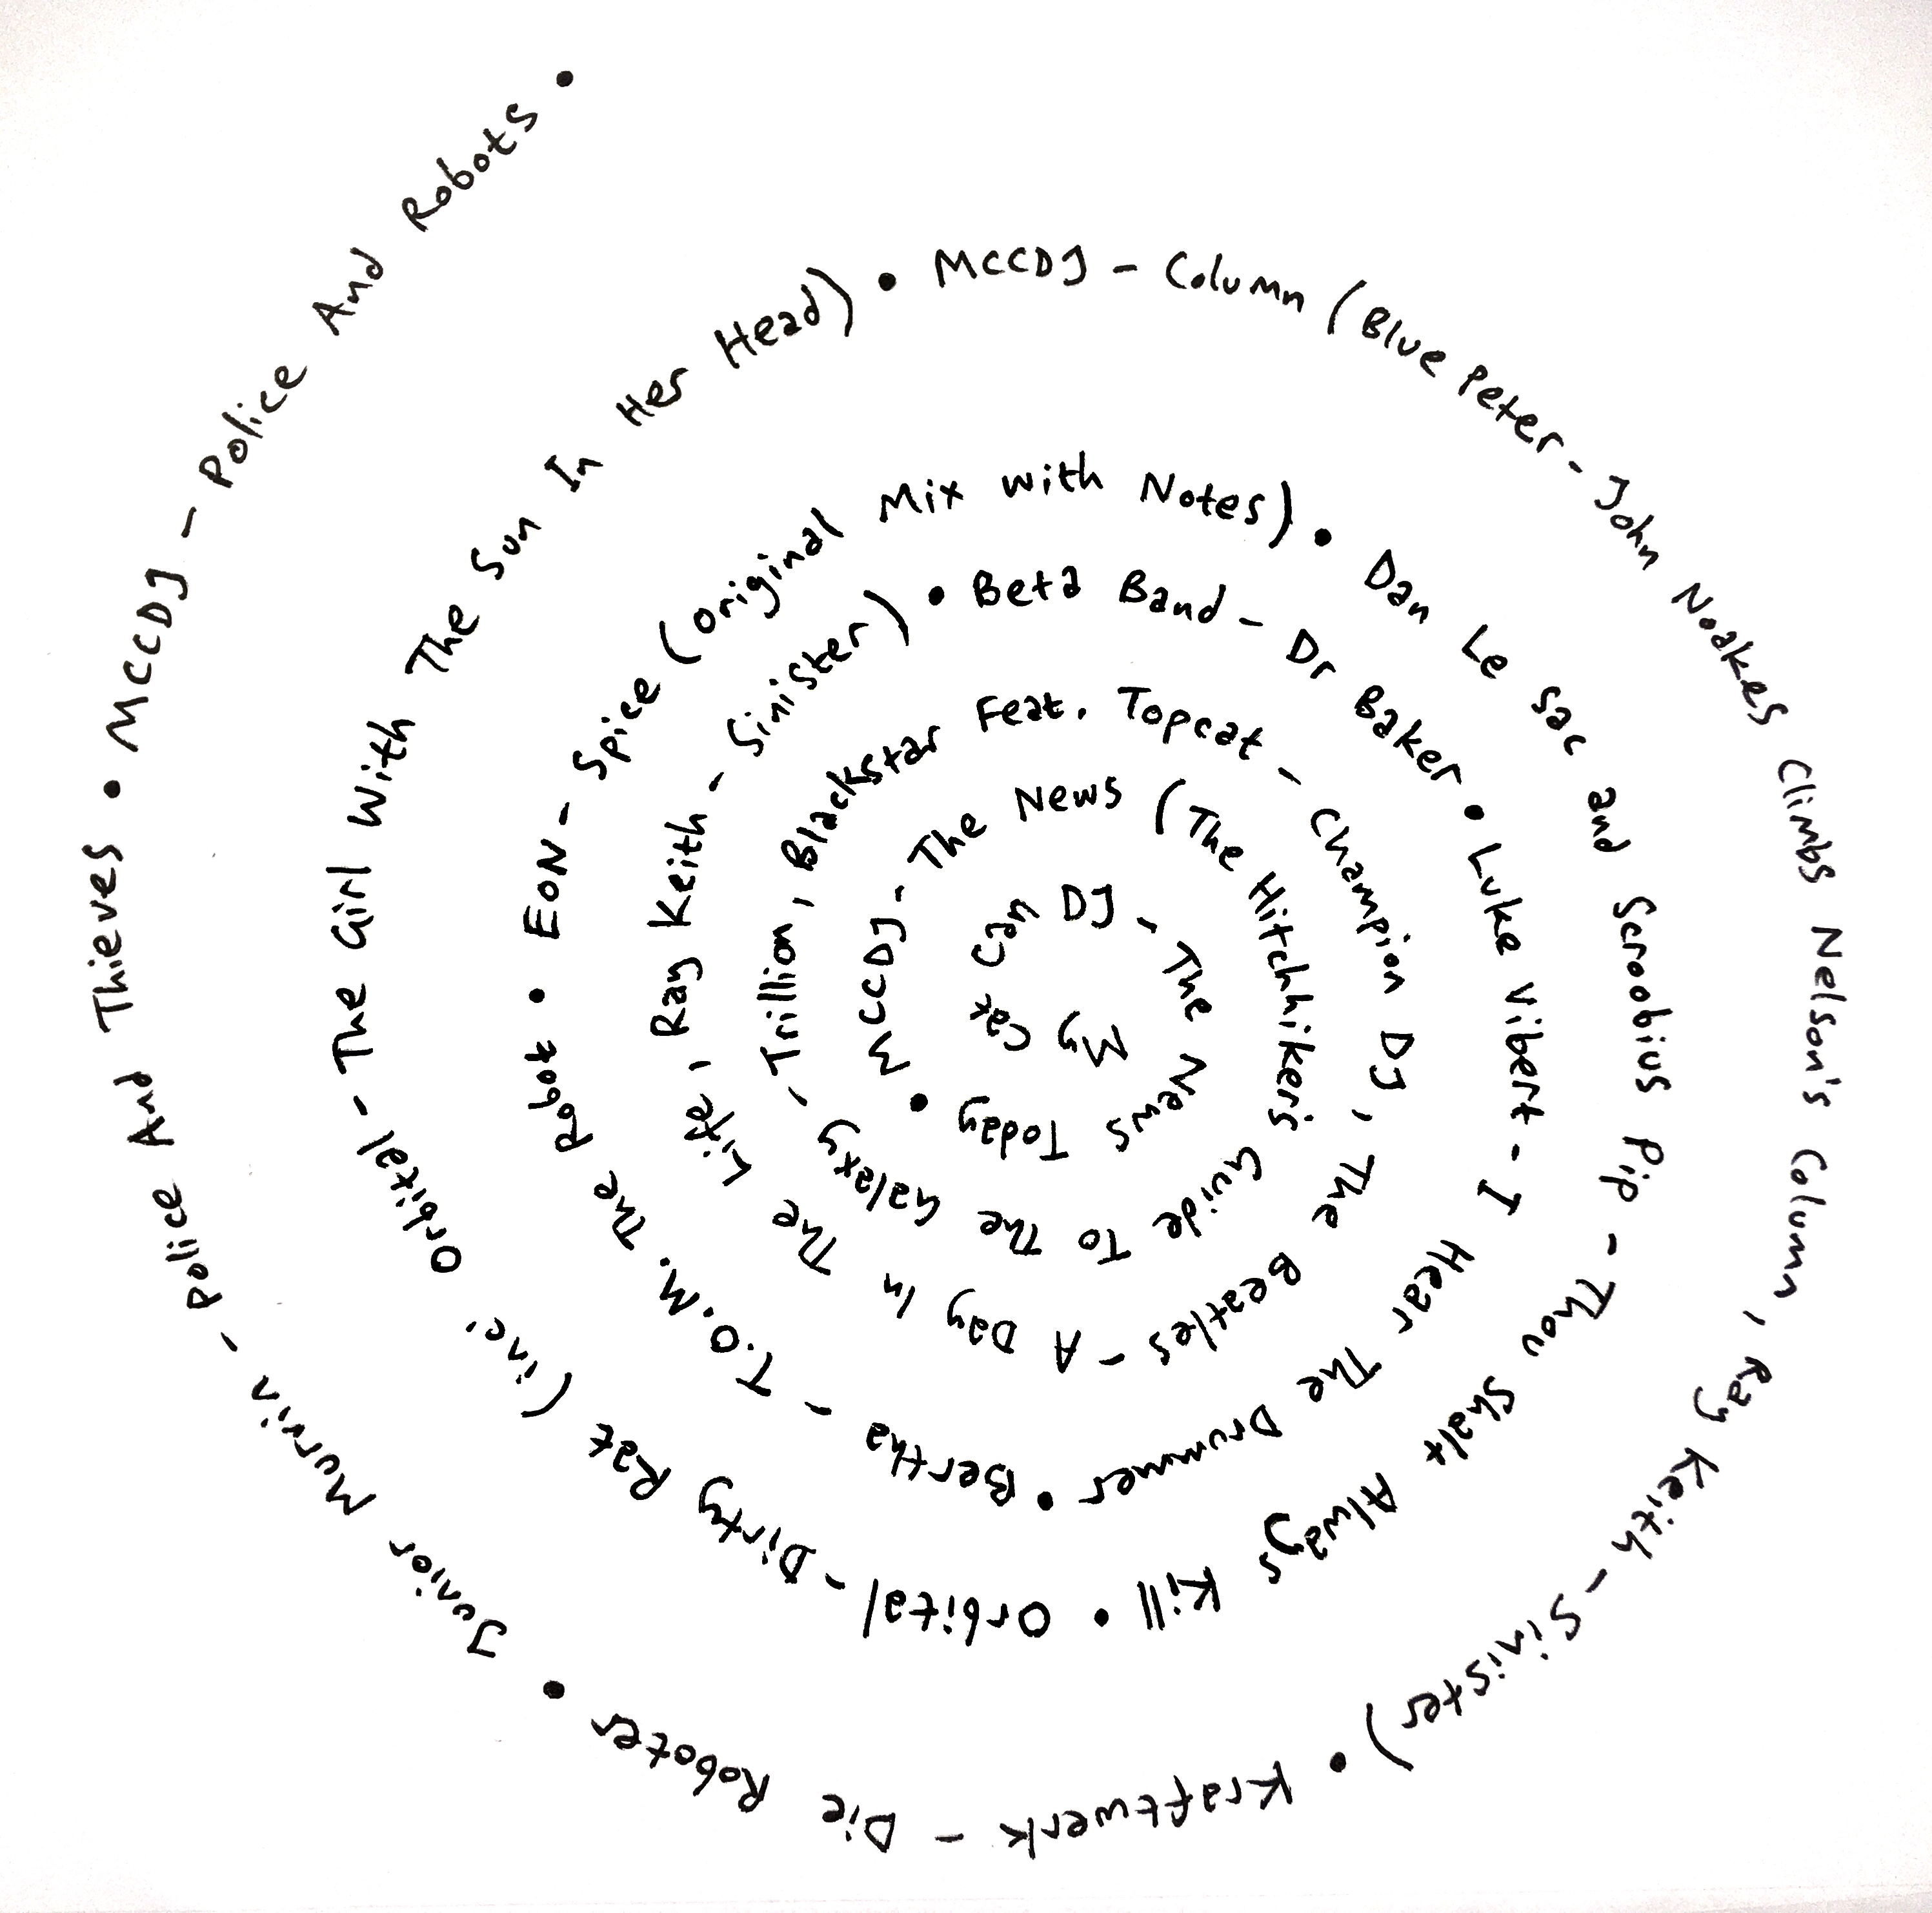 My Cat Can DJ - The News Today • MCCDJ - The News (The Hitchhiker's Guide To The Galaxy - Trillion, Blackstar Feat. Topcat - Champion DJ, The Beatles - A Day In The Life, Ray Keith - Sinister) • Beta Band - Dr Baker • Luke Vibert - I Hear The Drummer • Bertha - T.O.M. The Robot • EON - Spice (Original Mix with Notes) • Dan Le Sac and Scroobius Pip - Thou Shalt Always Kill • Orbital - Dirty Rat (inc. Orbital - The Girl With The Sun In Her Head) • MCCDJ - Column (Blue Peter - John Noakes Climbs Nelson's Column, Ray Keith - Sinister) • Kraftwerk - Die Roboter • Junior Murvin - Police And Thieves • MCCDJ - Police And Robots •